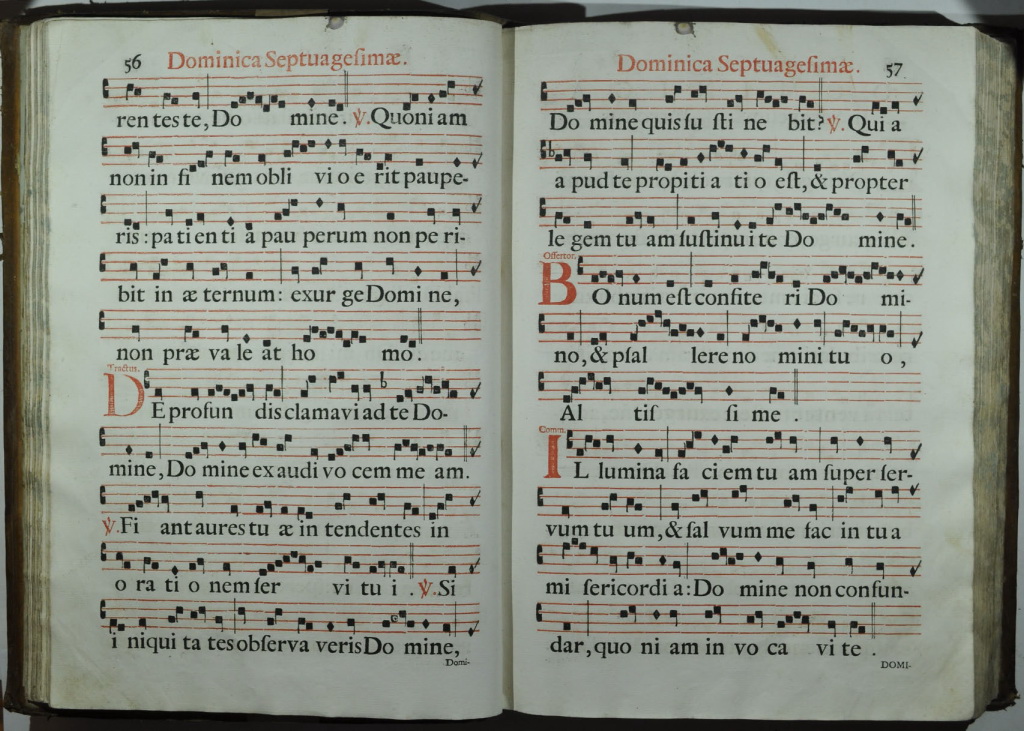 56 Dominica Septuageſimæ.
ren tes te, Do mine. ℣. Quoni am
non in fi nem obli vi o e rit paupe-
ris : pa ti en ti a pau perum non pe ri-
bit in æ ternum: exur ge Domi ne,
non præ va le at ho mo.
Tractus.
DE profun dis clamavi ad te Do-
mine, Do mine ex audi vo cem me am.
℣. Fi ant aures tu æ in tendentes in
o ra ti o nem ſer vi tu i . ℣. Si
i niqui ta tes obſerva veris Do mine,
Domi-
Dominica Septuageſimæ. 57
Do mine quis ſu ſti ne bit? ℣. Qui a
a pud te propiti a ti o eſt, & propter
le gem tu am ſuſtinu i te Do mine.
Offertor.
BO num eſt confite ri Do mi-
no, & pſal lere no mini tu o ,
Al tiſ ſi me .
Comm.
IL lumina fa ci em tu am ſuper ſer-
vum tu um, & ſal vum me fac in tu a
mi ſericordi a: Do mine non confun-
dar, quo ni am in vo ca vi te .
DOMI-